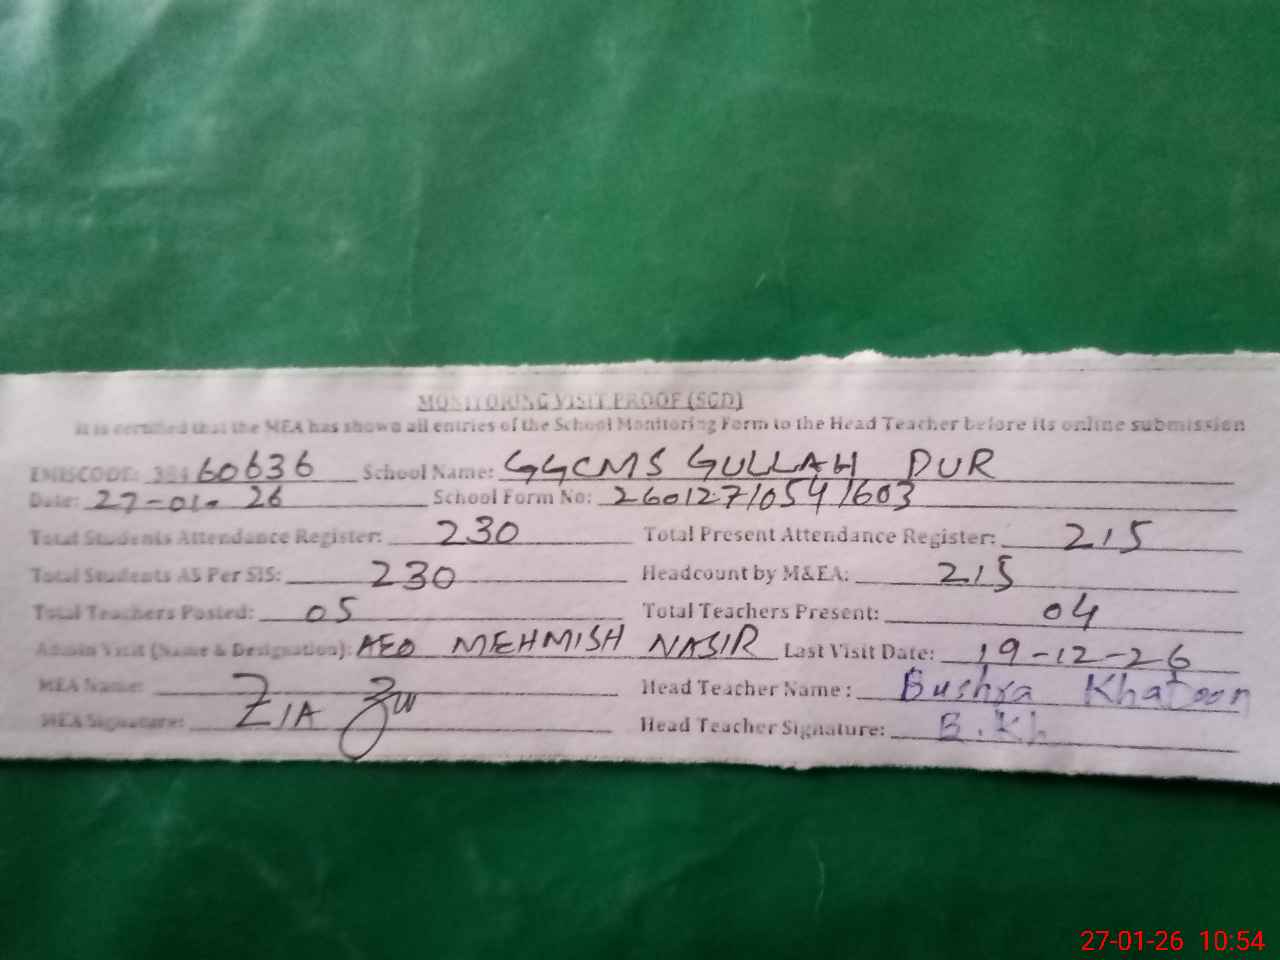 MONITORING VISIT PROOF (SCD)
It is certified that the MEA has shown all entries of the School Monitoring Form to the Head Teacher before its online submission
EMISCODE: 384 60636 School Name: GGCMS GULLAH PUR
Date: 27-01-26 School Form No: 26012710541603
Total Students Attendance Register: 230 Total Present Attendance Register: 215
Total Students AS Per SIS: 230 Headcount by M&EA: 215
Total Teachers Posted: 05 Total Teachers Present: 04
Admin Visit (Name & Designation): AEO MEHMISH NASIR Last Visit Date: 19-12-26
MEA Name: ZIA Head Teacher Name: Bushra Khatoon
MEA Signature: Head Teacher Signature: B.Kh
27-01-26 10:54